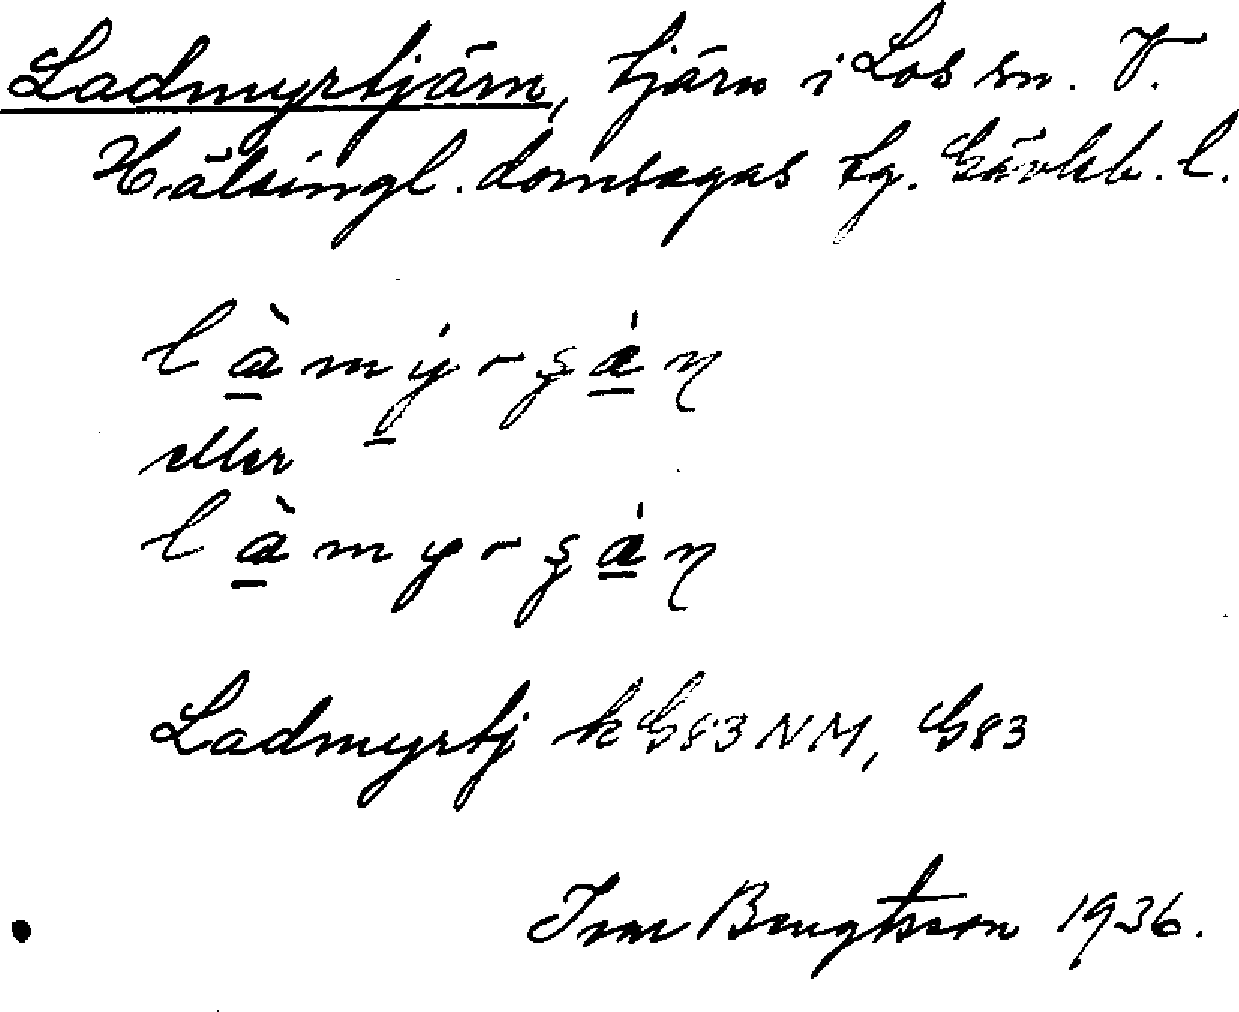 Ladmyrtjärn, tjärn i Los sn. V.
Hälsingl. domsagas tg. Gävleb. l.
eller
Ladmyrtj k G83 NM, G83
Ivar Bengtsson 1936.